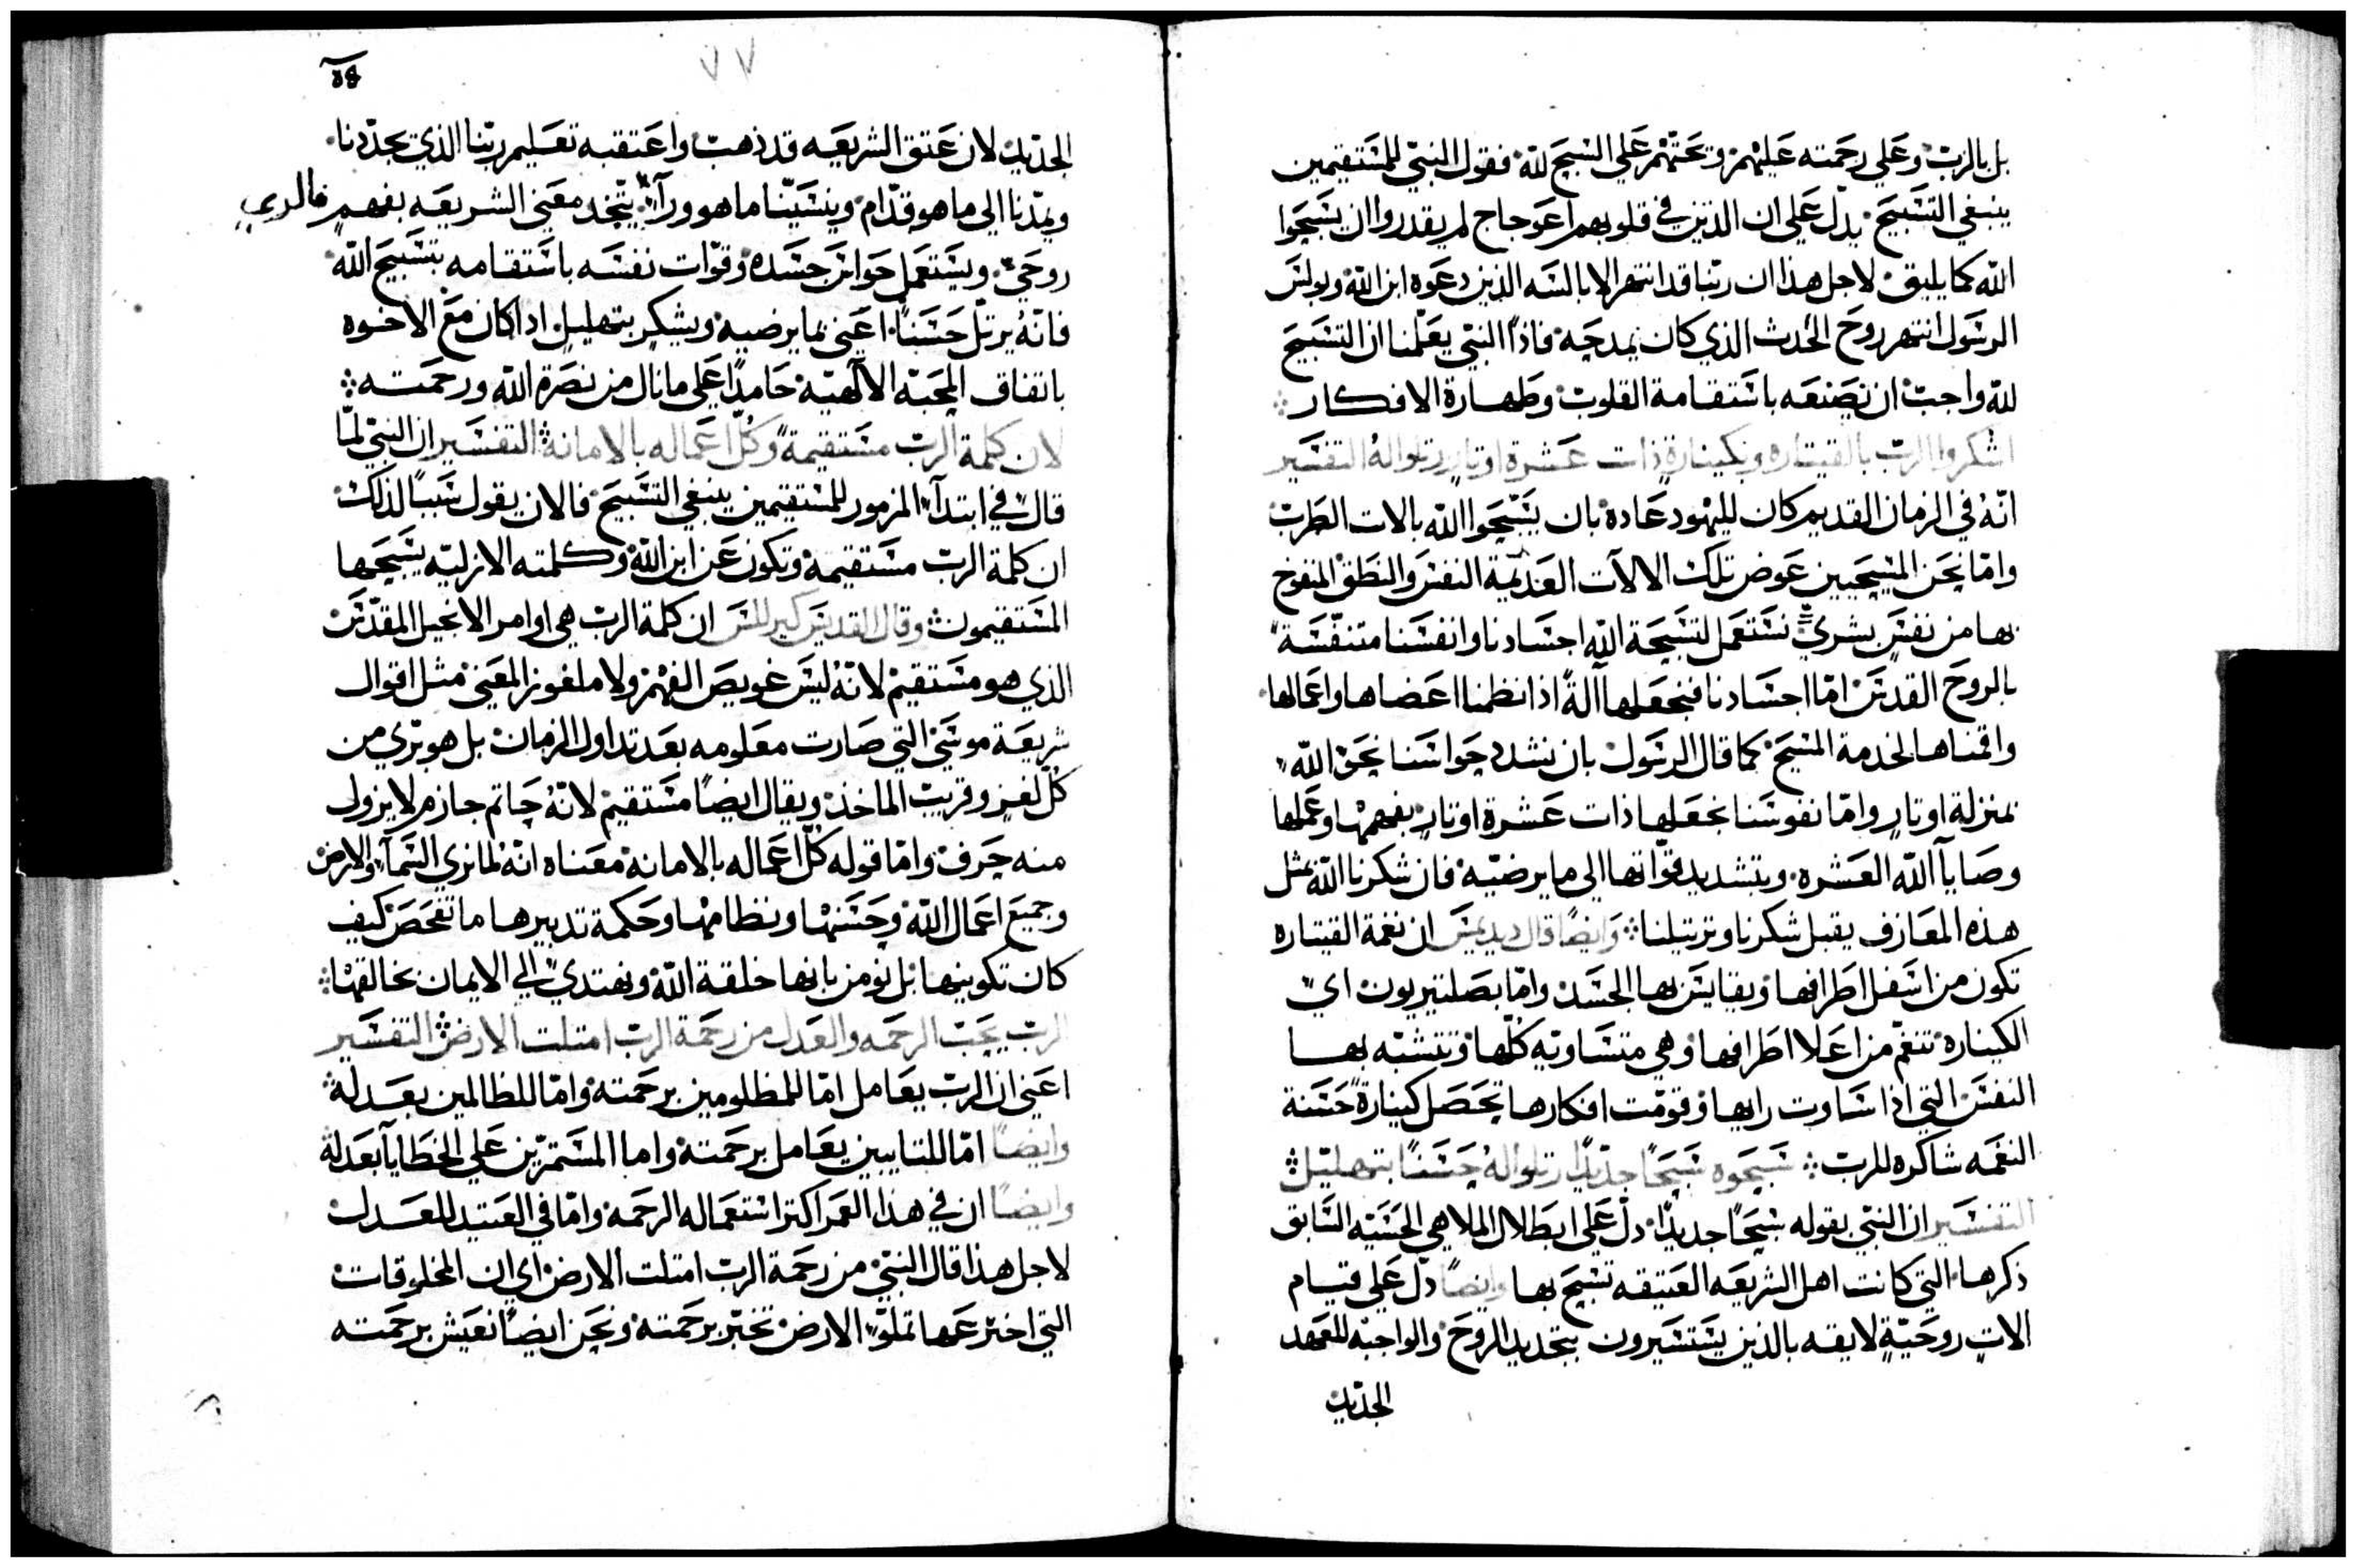 بل بالرب وعلي رحمته عليهم وتحتهم علي السبح لله فقول النبي للمستقيمين
ينبغي التسبيح يدل علي ان الذين في قلوبهم اعوجاج لم يقدروا ان يسبحوا
الله كما يليق لاجل هذا ان ربنا قد انتهر الابالسه الذين دعوه ابن الله وبولس
الرسول انتهر روح الحدث الذي كان يمدحه فاذا النبي يعلمنا ان التسبيح
لله واجب ان نصنعه باستقامة القلوب وطهارة الافكار
اشكروا الرب بالقيتاره وبكينارة ذات عشرة اوتار رتلوا له التفسير
انه في الزمان القديم كان لليهود عاده بان يسبحوا الله بالات الطرب
واما نحن المسيحيين عوض تلك الالات العديمة النفس والنطق المنفوخ
بها من نفس بشري نستعمل لتسبحة الله اجسادنا وانفسنا متنفسة
بالروح القدس اما اجسادنا فنجعلها آلة اذا نظمنا اعضاها واعمالها
واقمناها لخدمة المسيح كما قال الرسول بان نشدد حواسنا نحو الله
بمنزلة اوتار واما نفوسنا نجعلها ذات عشرة اوتار بفهمها وعملها
وصايا الله العشره وبتشديد قواتها الي ما يرضيه فان شكرنا الله بمثل
هذه المعازف يقبل شكرنا وترتيلنا وايضا قال ديديمس ان نغمة القيتاره
تكون من اسفل اطرافها ويقايس بها الجسد واما بصلتيريون اي
الكينارة تنغم من اعلا اطرافها وهي متساويه كلها وتتشبه بها
النفس التي اذا ساوت رايها وقومت افكارها تحصل كينارة حسنة
النغمه شاكره للرب سبحوه سبحا جديدا رتلوا له حسنا بتهليل
التفسير ان النبي بقوله سبحا جديدا دل علي ابطلال الملاهي الحسيه السابق
ذكرها التي كانت اهل الشريعه العتيقه تسبح بها وايضا دل علي قيام
الات روحية لايقه بالذين يستسيرون بتجديد الروح والواجبه للعهد
الجديد
٥٤
٧٧
الجديد لان عتق الشريعه قد ذهب واعتقبه تعليم ربنا الذي يجددنا
ويمدنا الي ما هو قدام وينسينا ما هو ورآ يتخد معني الشريعه بفهم فالدي
روحي ويستعمل حواس جسده وقوات نفسه باستقامه بتسبيح الله
فانه يرتل حسنا اعني بما يرضيه ويشكر بتهليل اذا كان مع الاخوه
باتفاق المحبه الالهية حامدا علي ما نال من نصرة الله ورحمته
لان كلمة الرب مستقيمة وكل اعماله بالامانة التفسير ان النبي لما
قال في ابتدآ المزمور للمستقيمين ينبغي التسبيح فالان يقول سببا لذلك
ان كلمة الرب مستقيمة وتكون عن ابن الله وكلمته الازليه يسبحها
المستقيمون وقال القديس كيرللس ان كلمة الرب هي اوامر الانجيل المقدس
الذي هو مستقيم لانه ليس غويص الفهم ولا ملغوز المعني مثل اقوال
شريعة موسي التي صارت معلومه بعد تداول الزمان بل هو بري من
كل لغز وقريب الماخذ ويقال ايضا مستقيم لانه حاتم جازم لا يزول
منه حرف واما قوله كل اعماله بالامانة معناه انه لما نري السمآ والارض
وجميع اعمال الله وحسنها ونظامها وحكمة تدبيرها ما نفحص كيف
كان تكوينها بل نومن بانها خلقة الله ونهتدي الي الايمان بخالقها
الرب يحب الرحمه والعدل من رحمة الرب امتلت الارض التفسير
اعني ان الرب يعامل اما للمظلومين برحمته واما للظالمين بعدله
وايضا اما للتايبين يعامل برحمته واما المستمرين علي الخطايا بعدله
وايضا ان في هذا العمر اكتر استعماله الرحمة واما في العتيد للعدل
لاجل هذا قال النبي من رحمة الرب امتلت الارض اي ان المخلوقات
التي اخترعها تملو الارض تخبر برحمته ونحن ايضا نعيش برحمته